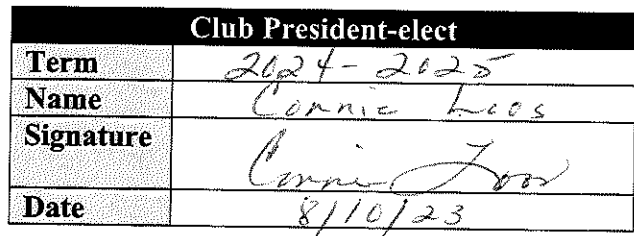 Club President-elect
Term 2024-2025
Name Connie Loos
Signature Connie Loos
Date 8/10/23